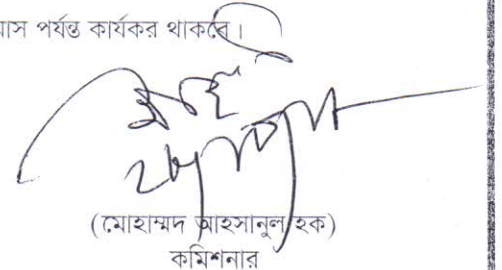 মাস পর্যন্ত কার্যকর থাকবে।
(মোহাম্মদ আহসানুল হক)
কমিশনার